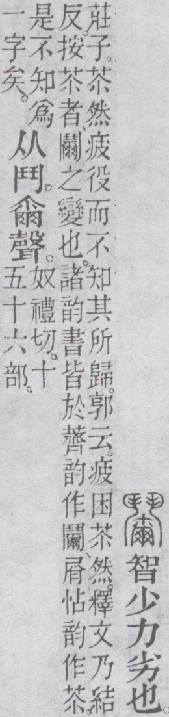 𩰞智少力劣也。
莊子。苶然疲役而不知其所歸。郭云。疲困苶然。釋文乃結
反。按苶者、𩰞之變也。諸韵書皆於薺韵作𩰞、屑怗韵作苶
是不知爲
一字矣。
从鬥。爾聲。
奴禮切。十
五十六部。